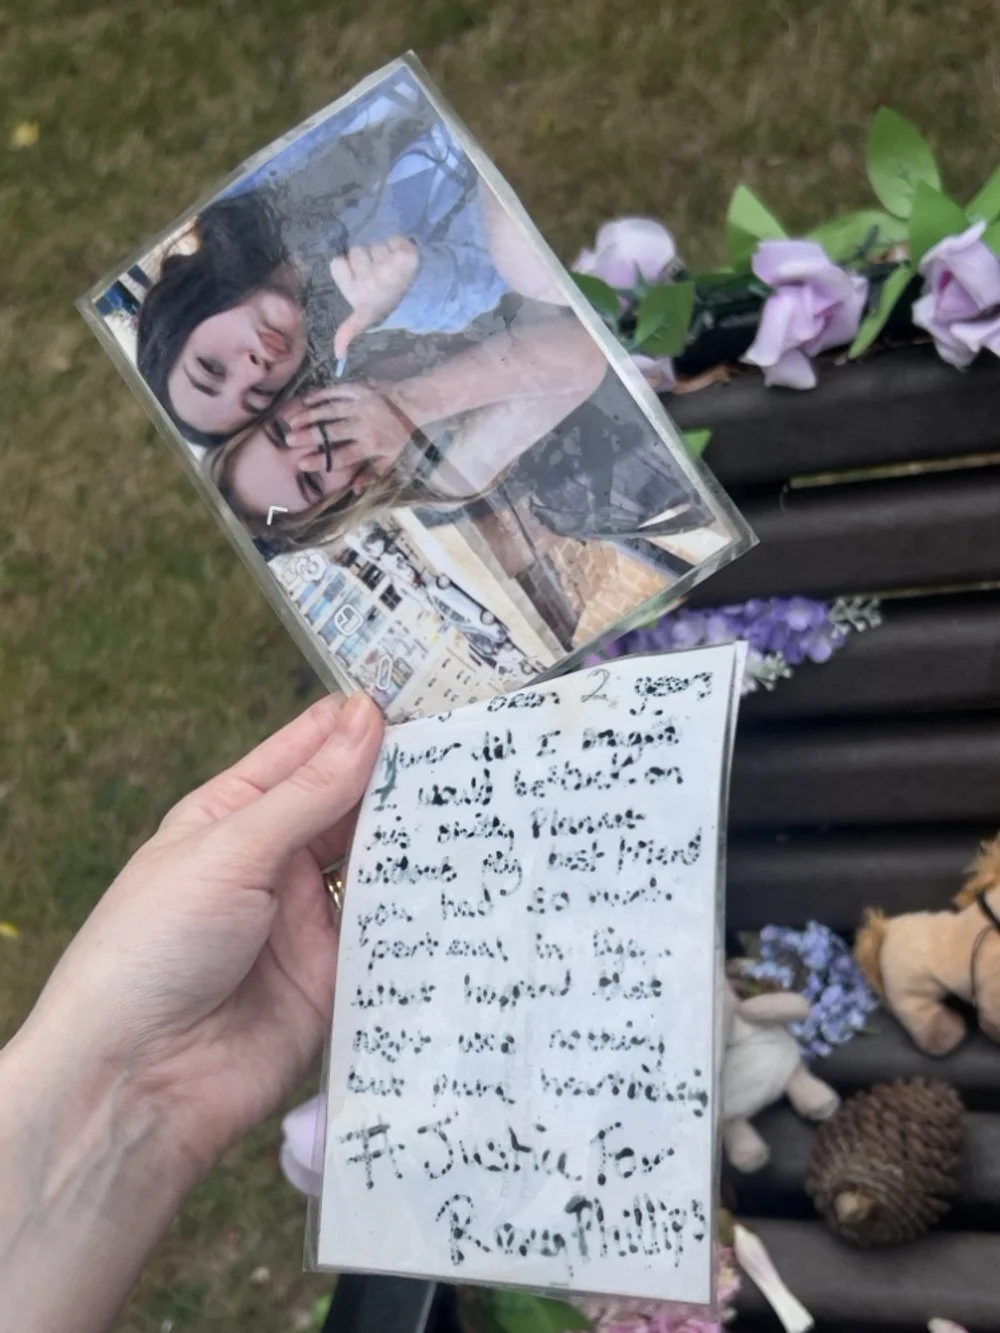 been 2 years
Never did I imagine
I would be stuck on
this shitty Planet
without my best friend
you had so much
potenal in life..
what happend that
night was nothing
but pure heartrobing
#Justice For
Roxy Phillips